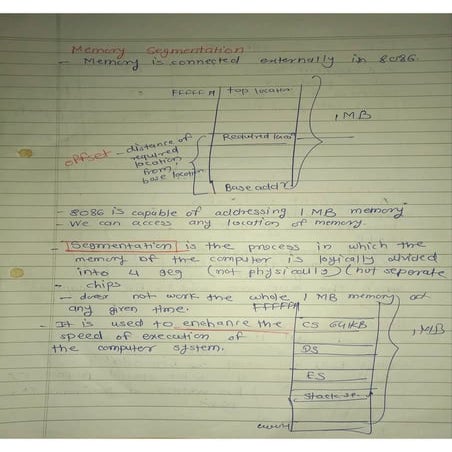 Memory Segmentation
- Memory is connected externally in 8086.
FFFFF H top location
1 MB
Required loca
offset - distance of
required
location
from
base location.
Base addr
- 8086 is capable of addressing 1 MB memory
- We can access any location of memory.
- Segmentation is the process in which the
memory of the computer is logically divided
into 4 seg (not physically) (not seperate
- chips
- does not work the whole 1 MB memory at
any given time.
FFFFFH
- It is used to enchance the
speed of execution of
the computer system.
CS 64KB
1 MB
DS
ES
Stack se